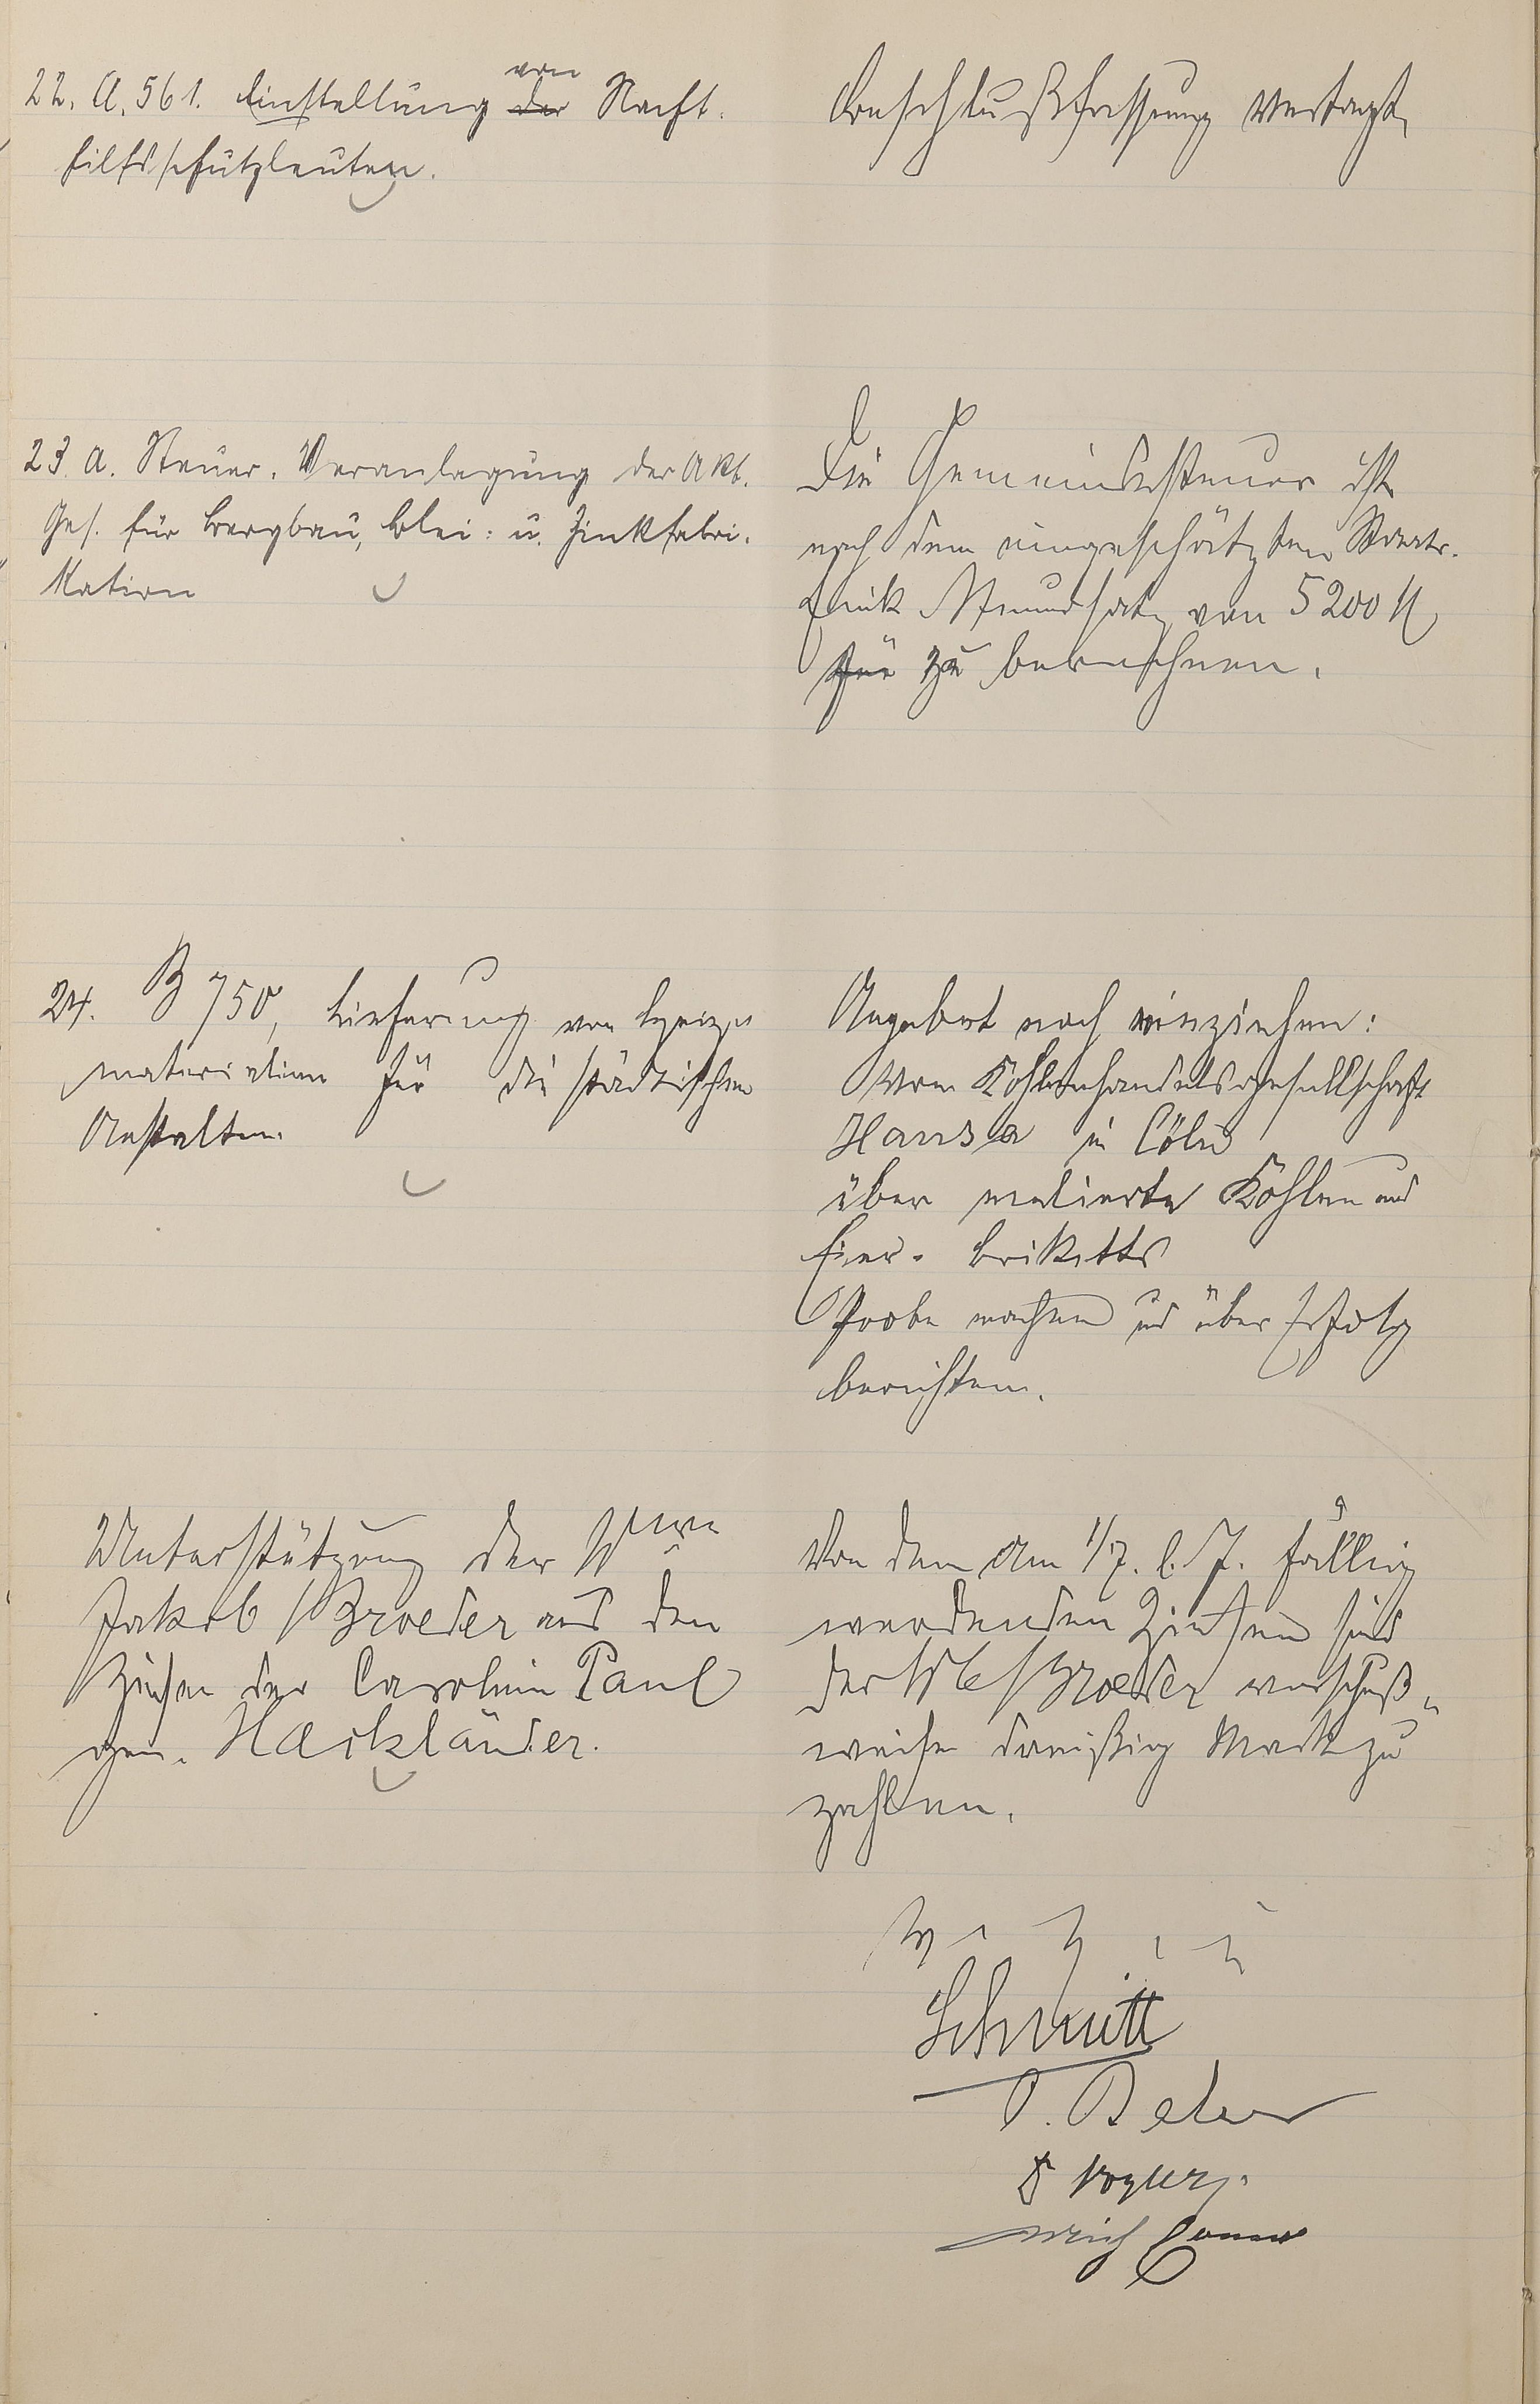 22. A. 561. Einstellung der von Nacht.
hilfsschutzleuten.
Beschlußfassung vertagt.
23. A. Steuer. Veranlagung der Akt.
Ges. für Bergbau, Blei- u. Zinkfabri-
kation
Die Gemeindesteuer ist
nach dem eingeschätzten Staats-
satz von 5200 M
für zu berechnen.
24. B 750, Lieferung von Heiz-
materialien für die städtischen
Anstalten.
Angebot noch einziehen:
Von Kohlenhandelsgesellschaft
Hansa in Cöln
über melierte Kohlen und
Eier-Briketts
Probe machen und über Erfolg
berichten.
Unterstützung der Wwe
Jakob Broeder aus den
Zinsen der Caroline Paul
gen. Hackländer.
Von den am 1/7. l. J. fällig
werdenden Zinsen sind
der Broeder vorschuß-
weise dreißig Mark zu
zahlen.
Schmitt